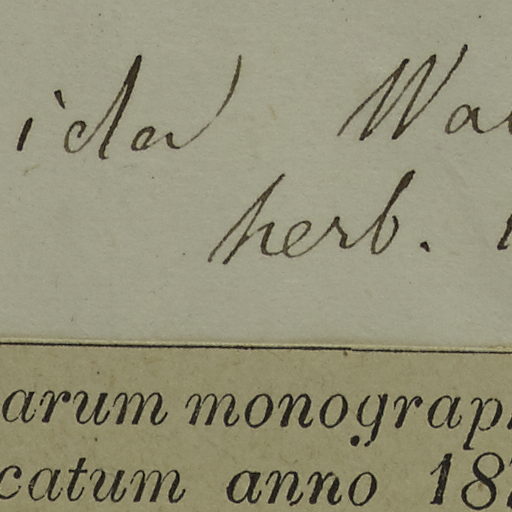 ida Wa
herb.
arum monograp
catum anno 187